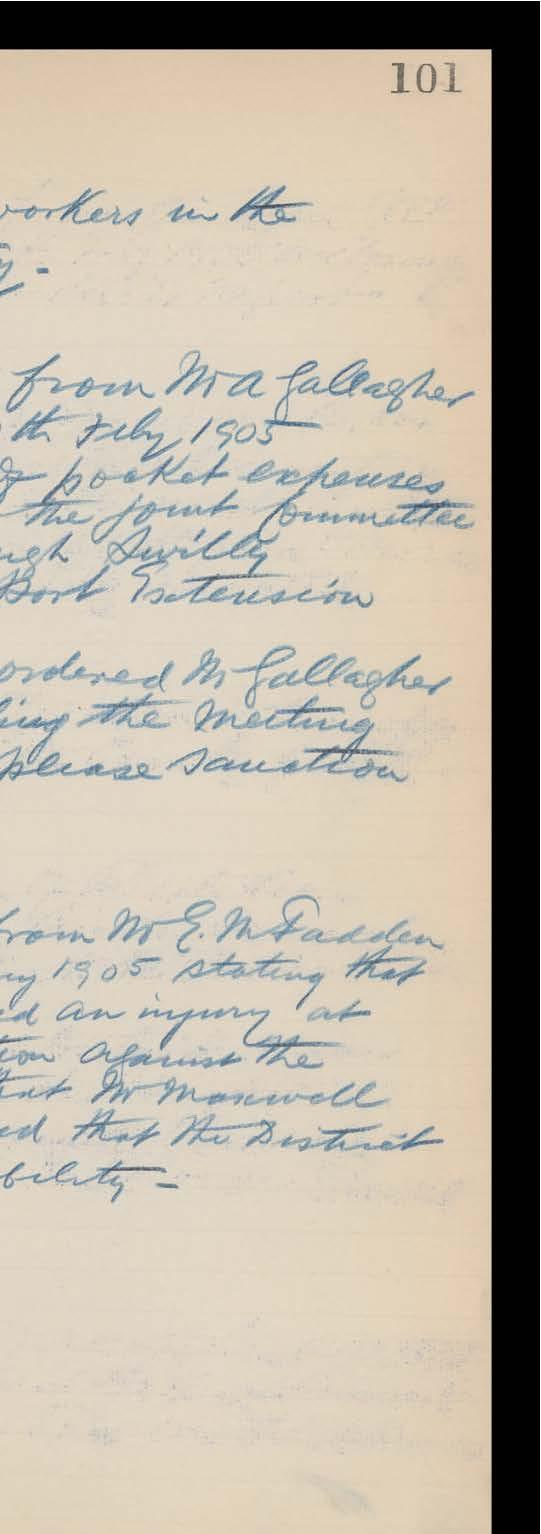 101
workers in the
y -
from Mr A Gallagher
th Feby 1905
of pocket expenses
the joint Committee
ugh Swilly
Port Extension
ordered Mr Gallagher
ding the meeting
please sanction
from Mr E. McFadden
ry 1905 stating that
ed an injury at
tion against the
that Mr Maxwell
ed that the District
bility -